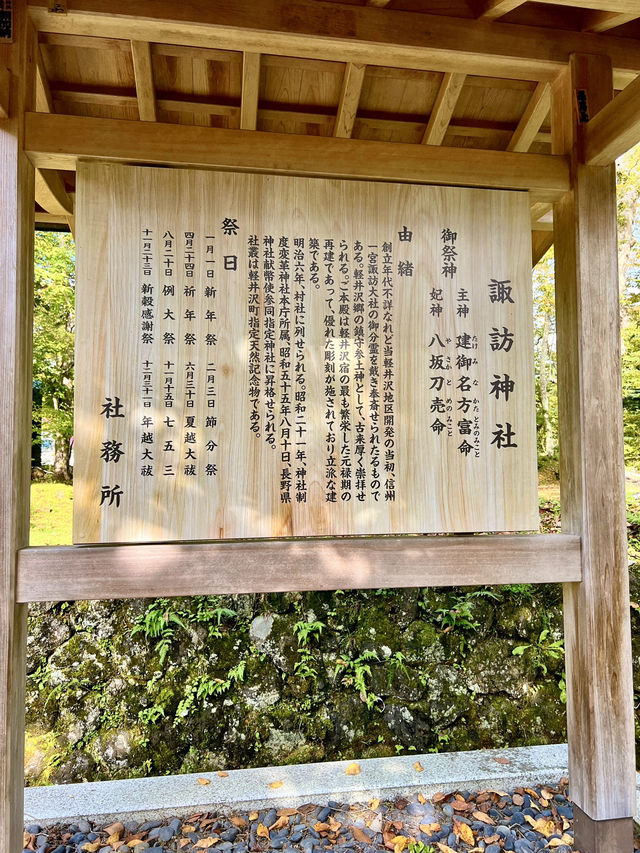 諏訪神社
御祭神
主神 建御名方富命
たけみなかたとみのみこと
妃神 八坂刀売命
やさかとめのみこと
由緒
創立年代不詳なれど当軽井沢地区開発の当初、信州
一宮諏訪大社の御分霊を戴き奉斎せられたるもので
ある。軽井沢郷の鎮守参土神として、古来厚く崇拝せ
られる。ご本殿は軽井沢宿の最も繁栄した元禄期の
再建であって、優れた彫刻が施されており立派な建
築である。
明治六年、村社に列せられる。昭和二十一年、神社制
度変革神社本庁所属、昭和五十五年八月十日、長野県
神社献幣使参向指定神社に昇格せられる。
社叢は軽井沢町指定天然記念物である。
祭日
一月一日 新年祭 二月三日 節分祭
四月二十四日 祈年祭 六月三十日 夏越大祓
八月二十日 例大祭 十一月十五日 七五三
十一月二十三日 新穀感謝祭 十二月三十一日 年越大祓
社務所